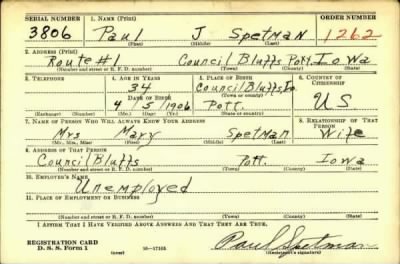 SERIAL NUMBER 1. NAME (Print) ORDER NUMBER
3806 Paul J Spetman 1262
(First) (Middle) (Last)
2. ADDRESS (Print)
Route #1 Council Bluffs Pott. Iowa
(Number and street or R. F. D. number) (Town) (County) (State)
3. TELEPHONE 4. AGE IN YEARS 5. PLACE OF BIRTH 6. COUNTRY OF CITIZENSHIP
34 Council Bluffs Io.
DATE OF BIRTH (Town or county)
4 / 5 / 1906 Pott. US
(Mo.) (Day) (Yr.) (State or country)
7. NAME OF PERSON WHO WILL ALWAYS KNOW YOUR ADDRESS 8. RELATIONSHIP OF THAT PERSON
Mrs Mary Spetman Wife
(Mr., Mrs., Miss) (First) (Middle) (Last)
9. ADDRESS OF THAT PERSON
Council Bluffs Pott. Iowa
(Number and street or R. F. D. number) (Town) (County) (State)
10. EMPLOYER'S NAME
Unemployed
11. PLACE OF EMPLOYMENT OR BUSINESS
(Number and street or R. F. D. number) (Town) (County) (State)
I AFFIRM THAT I HAVE VERIFIED ABOVE ANSWERS AND THAT THEY ARE TRUE.
REGISTRATION CARD
D. S. S. Form 1 (over) 16—17105 Paul Spetman
(Registrant's signature)